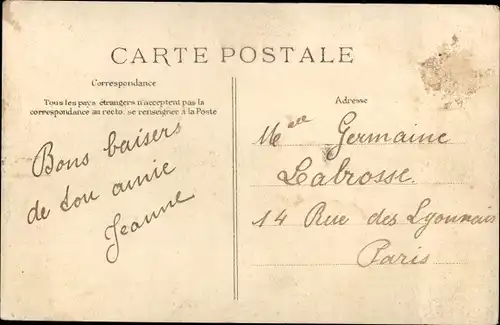 CARTE POSTALE
Correspondance
Tous les pays étrangers n'acceptent pas la
correspondance au recto. se renseigner à la Poste
Bons baisers
de ton amie
Jeanne
Adresse
Melle Germaine
Labrosse.
14 Rue des Lyonnais
Paris